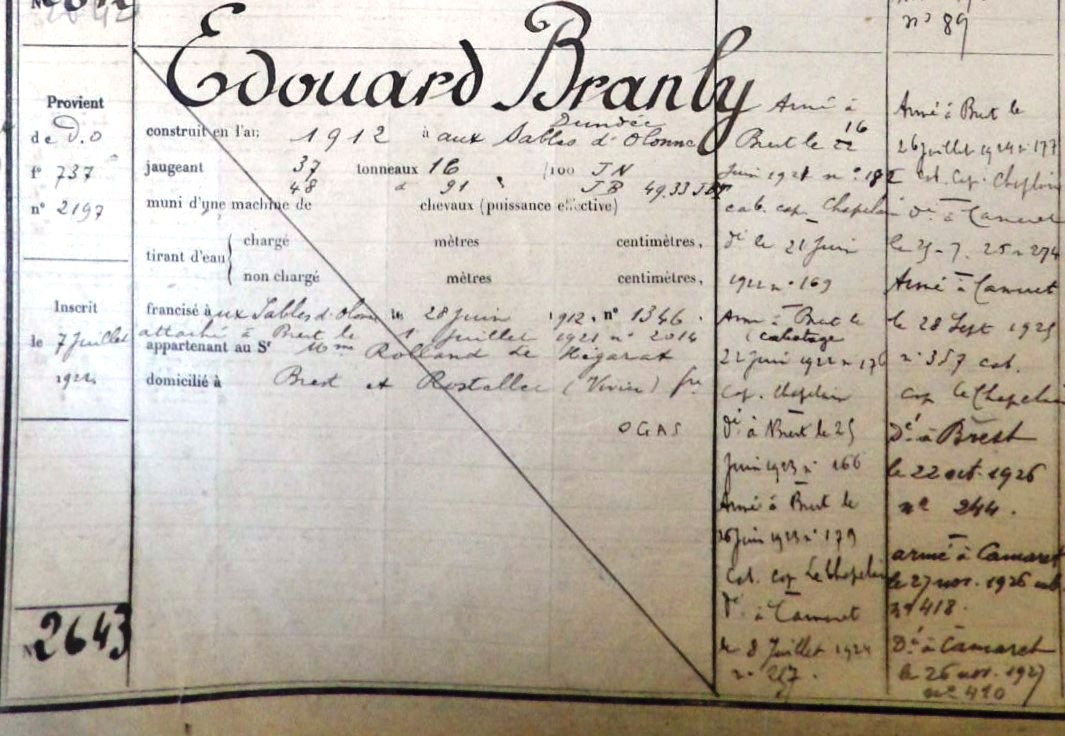 n° 89
Edouard Branly
Provient
de D.O
f° 737
n° 2197
Inscrit
le 7 Juillet
1921
N° 2643
Dundée
construit en l'an 1912 à aux Sables d'Olonne
jaugeant 37 tonneaux 16 /100 JN
48 d° 91 JB 49.33
muni d'une machine de chevaux (puissance effective)
tirant d'eau
chargé mètres centimètres,
non chargé mètres centimètres,
francisé à aux Sables d'Olonne le 28 juin 1912, n° 1346.
attaché à Brest le 1 Juillet 1921 n° 2014
appartenant au Sr Mme Rolland
domicilié à Brest et Rostellec (Vivier)
OGAS
Armé à
Brest le 16
Juin 1921 n°
cab. cap. Chapelain
Dé le 21 Juin
1922 n° 169
Armé à Brest le
(cabotage
22 Juin 1922 n° 176
cap. Chapelain
Dé à Brest le 25
Juin 1923 n° 166
Armé à Brest le
26 Juin 1923 n° 179
Cab. cap Le Chapelain
Dé à Camaret
le 8 Juillet 1924
n° 217.
Armé à Brest le
26 juillet 1924 n° 177
cab. Cap. Chapelain
Dé à Camaret
le 25-7-25 n 274
Armé à Camaret
le 28 Sept 1925
n° 357 cab.
cap le Chapelain
Dé à Brest
le 22 oct. 1926
n° 244.
armé à Camaret
le 27 nov. 1926 cab
n° 418.
Dé à Camaret
le 26 nov. 1927
n° 410